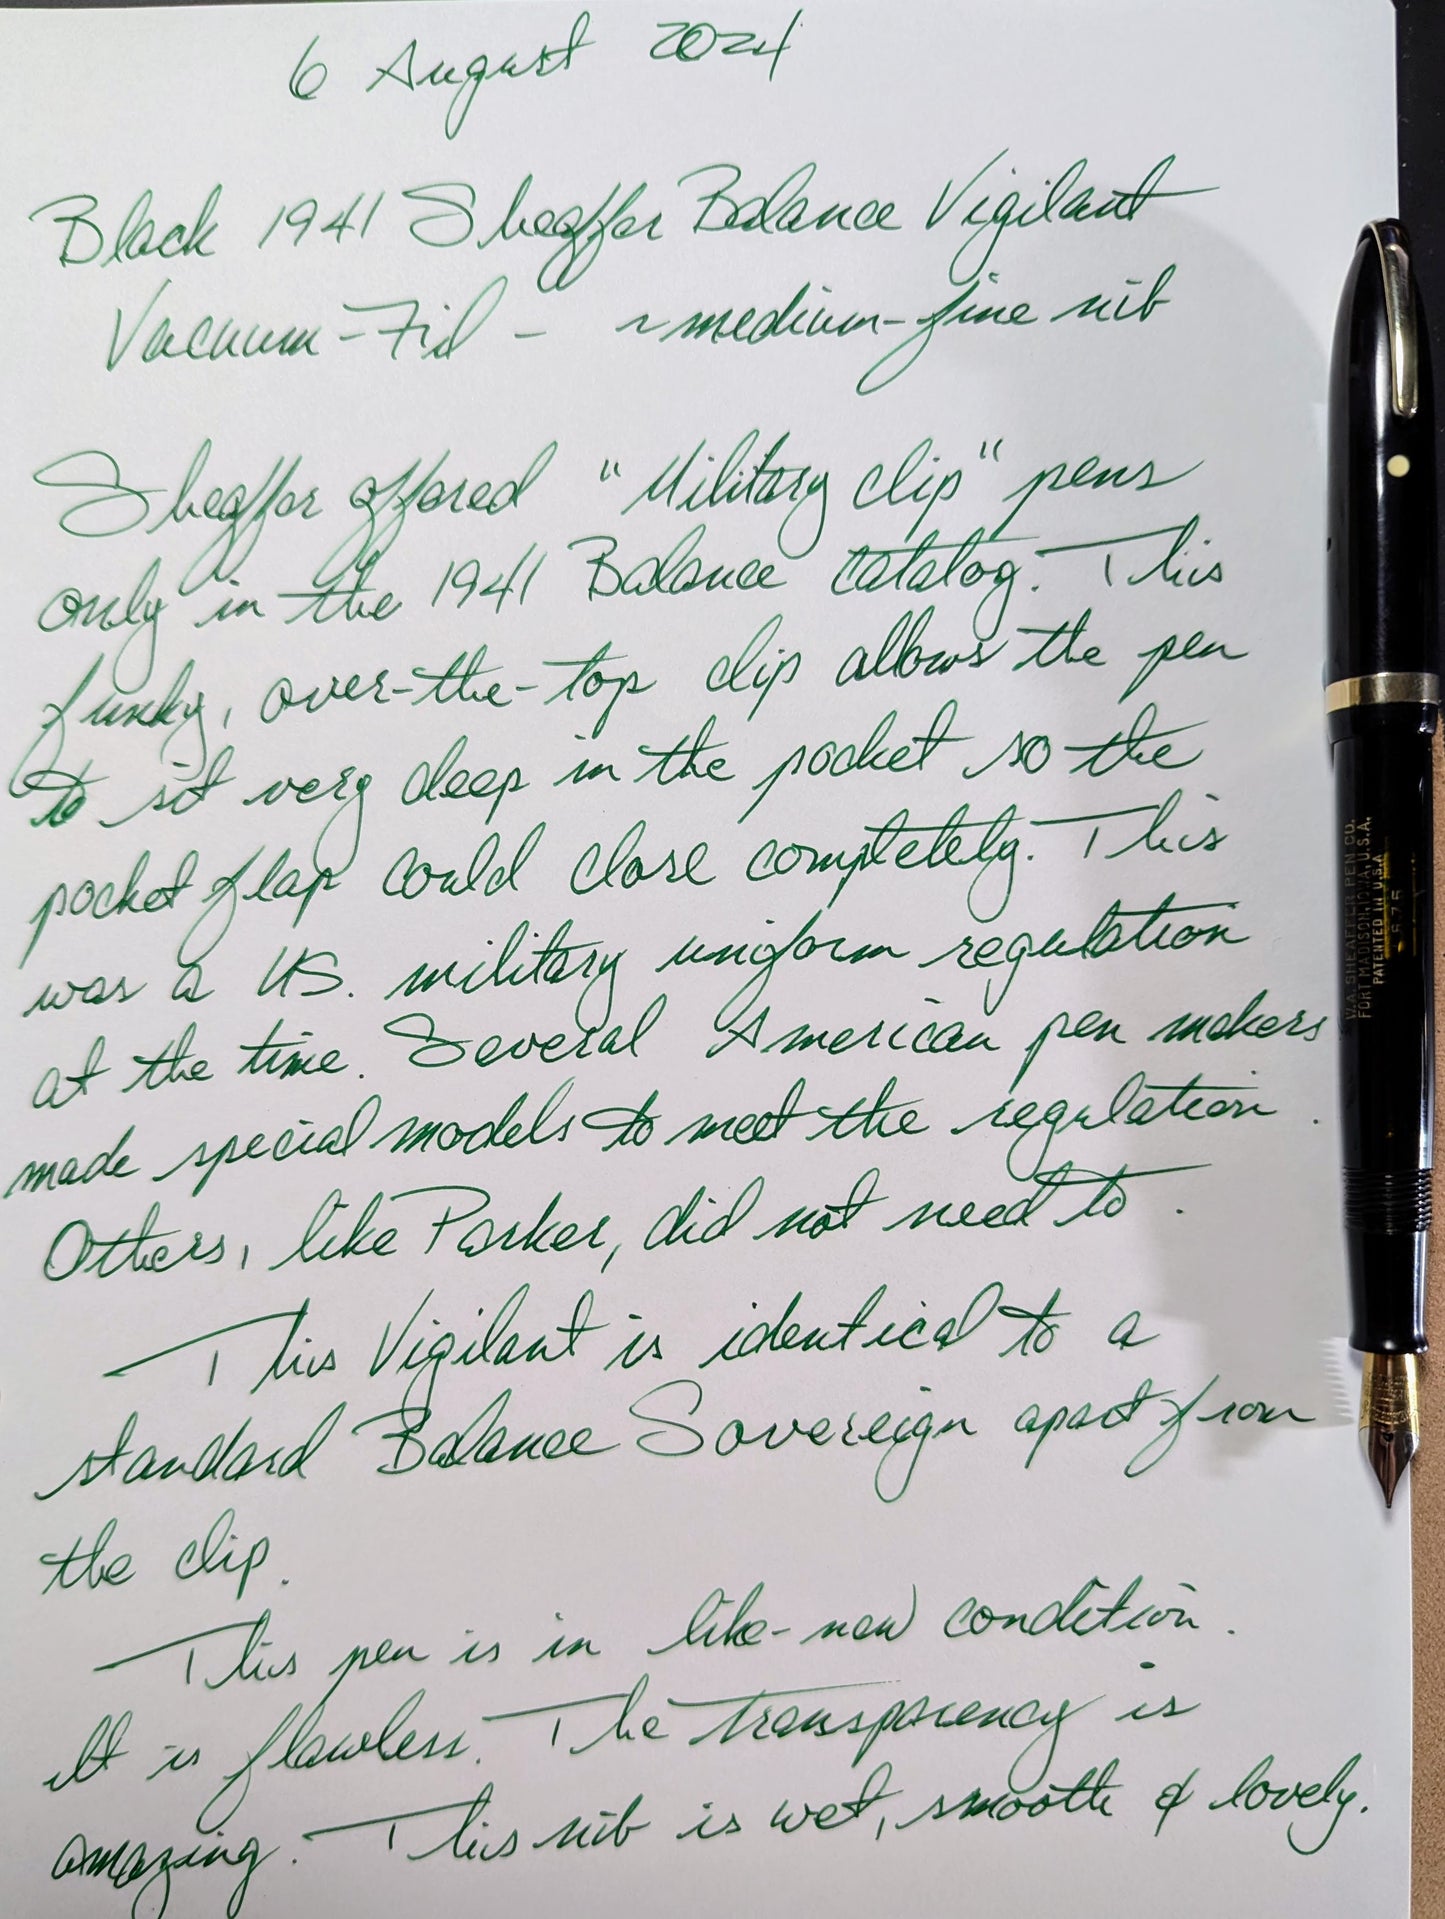 6 August 2024
Black 1941 Sheaffer Balance Vigilant
Vacuum-Fil - ~medium-fine nib
Sheaffer offered "Military clip" pens
only in the 1941 Balance catalog. This
funky, over-the-top clip allows the pen
to sit very deep in the pocket so the
pocket flap could close completely. This
was a US. military uniform regulation
at the time. Several American pen makers
made special models to meet the regulation.
Others, like Parker, did not need to.
This Vigilant is identical to a
standard Balance Sovereign apart from
the clip.
This pen is in like-new condition.
It is flawless. The transparency is
amazing. This nib is wet, smooth & lovely.
W.A. SHEAFFER PEN CO.
FORT MADISON, IOWA, U.S.A.
PATENTED IN U.S.A.
875